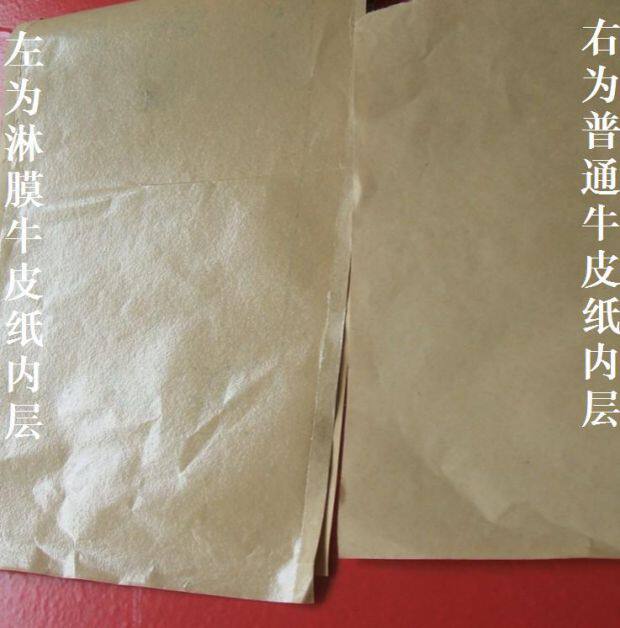 左为淋膜牛皮纸内层
右为普通牛皮纸内层